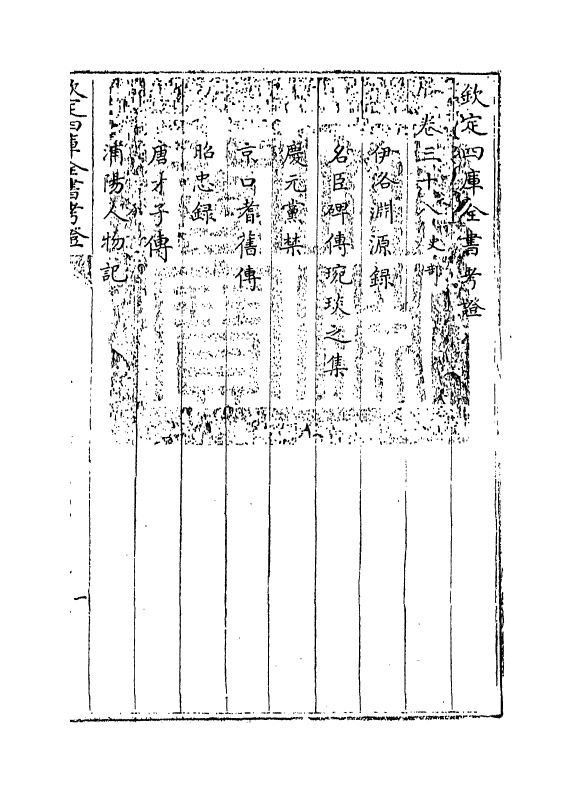 欽定四庫全書考證
卷三十八 史部
伊洛淵源錄
名臣碑傳琬琰之集
慶元黨禁
京口耆舊傳
昭忠錄
唐才子傳
浦陽人物記
欽定四庫全書考證
一